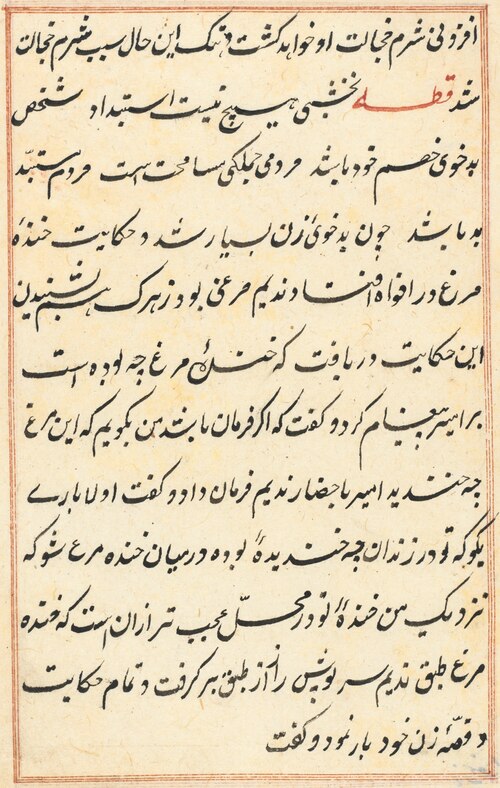 افزونی شرم خجالت او خواهد گشت و تیک این حال سبب شرم خجالت
شد قطعه نخشبی هیچ نیست استبداد شخص
بدخوی خصم خود باشد مردمی جملکی مسامحت است مردم ستبد
بد باشد چون بدخوئ زن بسیار شد و حکایت خنده
مرغ در افواه افتاد ندیم مرغی بود زهرک هم بشنیدن
این حکایت دریافت که خنده مرغ چه بوده است
بر امیر پیغام کرد و کفت که اکر فرمان باشد من بکویم که این مرغ
چه خندید امیر باحضار ندیم فرمان داد و کفت اولا بارے
بکو که تو در زندان چه خندیدهٔ بوده در میان خنده مرغ شو که
نزدیک من خندهٔ تو در محلّ عجب تر ازان است که خنده
مرغ طبق ندیم سرپوش راز از طبق بر کرفت و تمام حکایت
و قصّهٔ زن خود باز نمود و کفت